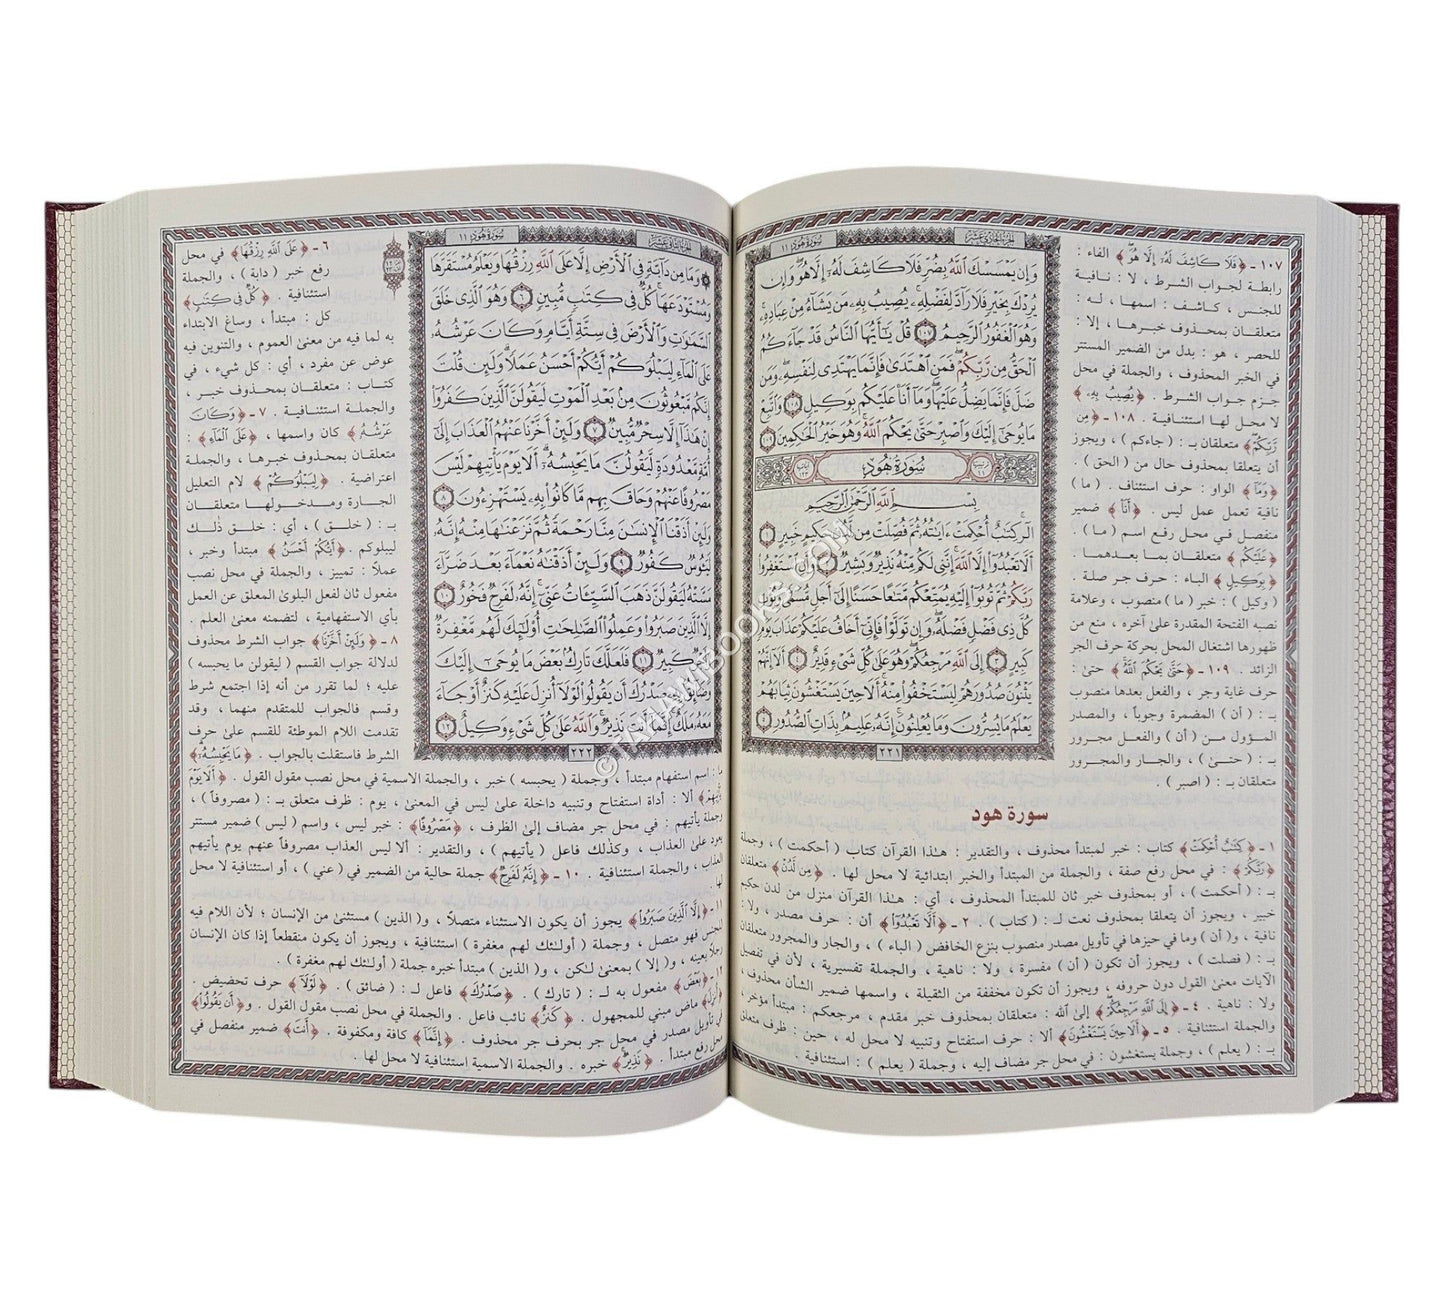 الجزء الحادي عشر
سورة هود ١١
وَإِن يَمْسَسْكَ ٱللَّهُ بِضُرٍّ فَلَا كَاشِفَ لَهُۥٓ إِلَّا هُوَ ۖ وَإِن
يُرِدْكَ بِخَيْرٍ فَلَا رَآدَّ لِفَضْلِهِۦ ۚ يُصِيبُ بِهِۦ مَن يَشَآءُ مِنْ عِبَادِهِۦ ۚ
وَهُوَ ٱلْغَفُورُ ٱلرَّحِيمُ ١٠٧ قُلْ يَٰٓأَيُّهَا ٱلنَّاسُ قَدْ جَآءَكُمُ
ٱلْحَقُّ مِن رَّبِّكُمْ ۖ فَمَنِ ٱهْتَدَىٰ فَإِنَّمَا يَهْتَدِى لِنَفْسِهِۦ ۖ وَمَن
ضَلَّ فَإِنَّمَا يَضِلُّ عَلَيْهَا ۖ وَمَآ أَنَا۠ عَلَيْكُم بِوَكِيلٍ ١٠٨ وَٱتَّبِعْ
مَا يُوحَىٰٓ إِلَيْكَ وَٱصْبِرْ حَتَّىٰ يَحْكُمَ ٱللَّهُ ۚ وَهُوَ خَيْرُ ٱلْحَٰكِمِينَ ١٠٩
سُورَةُ هُودٍ
بِسْمِ ٱللَّهِ ٱلرَّحْمَٰنِ ٱلرَّحِيمِ
الٓر ۚ كِتَٰبٌ أُحْكِمَتْ ءَايَٰتُهُۥ ثُمَّ فُصِّلَتْ مِن لَّدُنْ حَكِيمٍ خَبِيرٍ ١
أَلَّا تَعْبُدُوٓا۟ إِلَّا ٱللَّهَ ۚ إِنَّنِى لَكُم مِّنْهُ نَذِيرٌ وَبَشِيرٌ ٢ وَأَنِ ٱسْتَغْفِرُوا۟
رَبَّكُمْ ثُمَّ تُوبُوٓا۟ إِلَيْهِ يُمَتِّعْكُم مَّتَٰعًا حَسَنًا إِلَىٰٓ أَجَلٍ مُّسَمًّى وَيُؤْتِ
كُلَّ ذِى فَضْلٍ فَضْلَهُۥ ۖ وَإِن تَوَلَّوْا۟ فَإِنِّىٓ أَخَافُ عَلَيْكُمْ عَذَابَ يَوْمٍ
كَبِيرٍ ٣ إِلَى ٱللَّهِ مَرْجِعُكُمْ ۖ وَهُوَ عَلَىٰ كُلِّ شَىْءٍ قَدِيرٌ ٤ أَلَآ إِنَّهُمْ
يَثْنُونَ صُدُورَهُمْ لِيَسْتَخْفُوا۟ مِنْهُ ۚ أَلَا حِينَ يَسْتَغْشُونَ ثِيَابَهُمْ
يَعْلَمُ مَا يُسِرُّونَ وَمَا يُعْلِنُونَ ۚ إِنَّهُۥ عَلِيمٌۢ بِذَاتِ ٱلصُّدُورِ ٥
٢٢١
١٠٧ - ﴿ فَلَا كَاشِفَ لَهُۥٓ إِلَّا هُوَ ﴾ الفاء :
رابطة لجواب الشرط . لا : نافية
للجنس ، كاشف : اسمها ، له :
متعلقان بمحذوف خبرها ، إلا :
للحصر ، هو : بدل من الضمير المستتر
في الخبر المحذوف ، والجملة في محل
جزم جواب الشرط . ﴿ يُصِيبُ بِهِۦ ﴾
لا محل لها استئنافية . ١٠٨ - ﴿ مِن
رَّبِّكُمْ ﴾ متعلقان بـ : ( جاءكم ) ، ويجوز
أن يتعلقا بمحذوف حال من ( الحق ) .
﴿ وَمَآ ﴾ الواو : حرف استئناف . ( ما )
نافية تعمل عمل ليس . ﴿ أَنَا۠ ﴾ ضمير
منفصل في محل رفع اسم ( ما ) .
﴿ عَلَيْكُم ﴾ متعلقان بما بعدهما .
﴿ بِوَكِيلٍ ﴾ الباء : حرف جر صلة .
( وكيل ) : خبر ( ما ) منصوب ، وعلامة
نصبه الفتحة المقدرة على آخره ، منع من
ظهورها اشتغال المحل بحركة حرف الجر
الزائد . ١٠٩ - ﴿ حَتَّىٰ يَحْكُمَ ٱللَّهُ ﴾ حتى :
حرف غاية وجر ، والفعل بعدها منصوب
بـ : ( أن ) المضمرة وجوباً ، والمصدر
المؤول من ( أن ) والفعل مجرور
بـ : ( حتى ) ، والجار والمجرور
متعلقان بـ : ( اصبر ) .
سورة هود
١ - ﴿ كِتَٰبٌ أُحْكِمَتْ ﴾ كتاب : خبر لمبتدأ محذوف ، والتقدير : هذا القرآن كتاب ( أحكمت ) ، وجملة
﴿ رَبَّكُمْ ﴾ : في محل رفع صفة ، والجملة من المبتدأ والخبر ابتدائية لا محل لها . ﴿ مِن لَّدُنْ ﴾ متعلقان
بـ : ( أحكمت ) ، أو بمحذوف خبر ثان للمبتدأ المحذوف ، أي : هذا القرآن منزل من لدن حكيم
خبير ، ويجوز أن يتعلقا بمحذوف نعت لـ : ( كتاب ) . ٢ - ﴿ أَلَّا تَعْبُدُوٓا۟ ﴾ أن : حرف مصدر ، ولا :
نافية ، و( أن ) وما في حيزها في تأويل مصدر منصوب بنزع الخافض ( الباء ) ، والجار والمجرور متعلقان
بـ : ( فصلت ) ، ويجوز أن تكون ( أن ) مفسرة ، ولا : ناهية ، والجملة تفسيرية ، لأن في تفصيل
الآيات معنى القول دون حروفه ، ويجوز أن تكون مخففة من الثقيلة ، واسمها ضمير الشأن محذوف ،
ولا : ناهية . ٤ - ﴿ إِلَى ٱللَّهِ مَرْجِعُكُمْ ﴾ إلى الله : متعلقان بمحذوف خبر مقدم ، مرجعكم : مبتدأ مؤخر ،
والجملة استئنافية . ٥ - ﴿ أَلَا حِينَ يَسْتَغْشُونَ ﴾ ألا : حرف استفتاح وتنبيه لا محل له ، حين : ظرف متعلق
بـ : ( يعلم ) ، وجملة يستغشون : في محل جر مضاف إليه ، وجملة ( يعلم ) : استئنافية .
الجزء الثاني عشر
سورة هود ١١
وَمَا مِن دَآبَّةٍ فِى ٱلْأَرْضِ إِلَّا عَلَى ٱللَّهِ رِزْقُهَا وَيَعْلَمُ مُسْتَقَرَّهَا
وَمُسْتَوْدَعَهَا ۚ كُلٌّ فِى كِتَٰبٍ مُّبِينٍ ٦ وَهُوَ ٱلَّذِى خَلَقَ
ٱلسَّمَٰوَٰتِ وَٱلْأَرْضَ فِى سِتَّةِ أَيَّامٍ وَكَانَ عَرْشُهُۥ
عَلَى ٱلْمَآءِ لِيَبْلُوَكُمْ أَيُّكُمْ أَحْسَنُ عَمَلًا ۗ وَلَئِن قُلْتَ
إِنَّكُم مَّبْعُوثُونَ مِنۢ بَعْدِ ٱلْمَوْتِ لَيَقُولَنَّ ٱلَّذِينَ كَفَرُوٓا۟
إِنْ هَٰذَآ إِلَّا سِحْرٌ مُّبِينٌ ٧ وَلَئِنْ أَخَّرْنَا عَنْهُمُ ٱلْعَذَابَ إِلَىٰٓ
أُمَّةٍ مَّعْدُودَةٍ لَّيَقُولُنَّ مَا يَحْبِسُهُۥٓ ۗ أَلَا يَوْمَ يَأْتِيهِمْ لَيْسَ
مَصْرُوفًا عَنْهُمْ وَحَاقَ بِهِم مَّا كَانُوا۟ بِهِۦ يَسْتَهْزِءُونَ ٨
وَلَئِنْ أَذَقْنَا ٱلْإِنسَٰنَ مِنَّا رَحْمَةً ثُمَّ نَزَعْنَٰهَا مِنْهُ إِنَّهُۥ
لَيَـُٔوسٌ كَفُورٌ ٩ وَلَئِنْ أَذَقْنَٰهُ نَعْمَآءَ بَعْدَ ضَرَّآءَ
مَسَّتْهُ لَيَقُولَنَّ ذَهَبَ ٱلسَّيِّـَٔاتُ عَنِّىٓ ۚ إِنَّهُۥ لَفَرِحٌ فَخُورٌ ١٠
إِلَّا ٱلَّذِينَ صَبَرُوا۟ وَعَمِلُوا۟ ٱلصَّٰلِحَٰتِ أُو۟لَٰٓئِكَ لَهُم مَّغْفِرَةٌ
وَأَجْرٌ كَبِيرٌ ١١ فَلَعَلَّكَ تَارِكٌۢ بَعْضَ مَا يُوحَىٰٓ إِلَيْكَ
وَضَآئِقٌۢ بِهِۦ صَدْرُكَ أَن يَقُولُوا۟ لَوْلَآ أُنزِلَ عَلَيْهِ كَنزٌ أَوْ جَآءَ
مَعَهُۥ مَلَكٌ ۚ إِنَّمَآ أَنتَ نَذِيرٌ ۚ وَٱللَّهُ عَلَىٰ كُلِّ شَىْءٍ وَكِيلٌ ١٢
٢٢٢
٦ - ﴿ عَلَى ٱللَّهِ رِزْقُهَا ﴾ في محل
رفع خبر ( دابة ) ، والجملة
استئنافية . ﴿ كُلٌّ فِى كِتَٰبٍ ﴾
كل : مبتدأ ، وساغ الابتداء
به لما فيه من معنى العموم ، والتنوين فيه
عوض عن مفرد ، أي : كل شيء ، في
كتاب : متعلقان بمحذوف خبر ،
والجملة استئنافية . ٧ - ﴿ وَكَانَ
عَرْشُهُۥ ﴾ كان واسمها ، ﴿ عَلَى ٱلْمَآءِ ﴾ :
متعلقان بمحذوف خبرها ، والجملة
اعتراضية . ﴿ لِيَبْلُوَكُمْ ﴾ لام التعليل
الجارة ومدخولها متعلقان
بـ : ( خلق ) ، أي : خلق ذلك
ليبلوكم . ﴿ أَيُّكُمْ أَحْسَنُ ﴾ مبتدأ وخبر ،
عملاً : تمييز ، والجملة في محل نصب
مفعول ثان لفعل البلوى المعلق عن العمل
بأي الاستفهامية ، لتضمنه معنى العلم .
٨ - ﴿ وَلَئِنْ أَخَّرْنَا ﴾ جواب الشرط محذوف
لدلالة جواب القسم ( ليقولن ما يحبسه )
عليه ؛ لما تقرر من أنه إذا اجتمع شرط
وقسم فالجواب للمتقدم منهما ، وقد
تقدمت اللام الموطئة للقسم على حرف
الشرط فاستقلت بالجواب . ﴿ مَا يَحْبِسُهُۥٓ ﴾
ما : اسم استفهام مبتدأ ، وجملة ( يحبسه ) خبر ، والجملة الاسمية في محل نصب مقول القول . ﴿ أَلَا يَوْمَ
يَأْتِيهِمْ ﴾ ألا : أداة استفتاح وتنبيه داخلة على ليس في المعنى ، يوم : ظرف متعلق بـ : ( مصروفاً ) ،
وجملة يأتيهم : في محل جر مضاف إلى الظرف ، ﴿ مَصْرُوفًا ﴾ : خبر ليس ، واسم ( ليس ) ضمير مستتر
يعود على العذاب ، وكذلك فاعل ( يأتيهم ) ، والتقدير : ألا ليس العذاب مصروفاً عنهم يوم يأتيهم
العذاب ، والجملة استئنافية . ١٠ - ﴿ إِنَّهُۥ لَفَرِحٌ ﴾ جملة حالية من الضمير في ( عني ) ، أو استئنافية لا محل
لها .
١١ - ﴿ إِلَّا ٱلَّذِينَ صَبَرُوا۟ ﴾ يجوز أن يكون الاستثناء متصلاً ، و( الذين ) مستثنى من الإنسان ؛ لأن اللام فيه
للجنس فهو متصل ، وجملة ( أولئك لهم مغفرة ) استئنافية ، ويجوز أن يكون منقطعاً إذا كان الإنسان
رجلاً بعينه ، و( إلا ) بمعنى لكن ، و( الذين ) مبتدأ خبره جملة ( أولئك لهم مغفرة ) .
١٢ - ﴿ بَعْضَ ﴾ مفعول به لـ : ( تارك ) . ﴿ صَدْرُكَ ﴾ فاعل لـ : ( ضائق ) . ﴿ لَوْلَآ ﴾ حرف تحضيض .
﴿ أُنزِلَ ﴾ ماض مبني للمجهول . ﴿ كَنزٌ ﴾ نائب فاعل . والجملة في محل نصب مقول القول . و﴿ أَن يَقُولُوا۟ ﴾
في تأويل مصدر في محل جر بحرف جر محذوف . ﴿ إِنَّمَآ ﴾ كافة ومكفوفة . ﴿ أَنتَ ﴾ ضمير منفصل في
محل رفع مبتدأ . ﴿ نَذِيرٌ ﴾ خبره . والجملة الاسمية استئنافية لا محل لها .